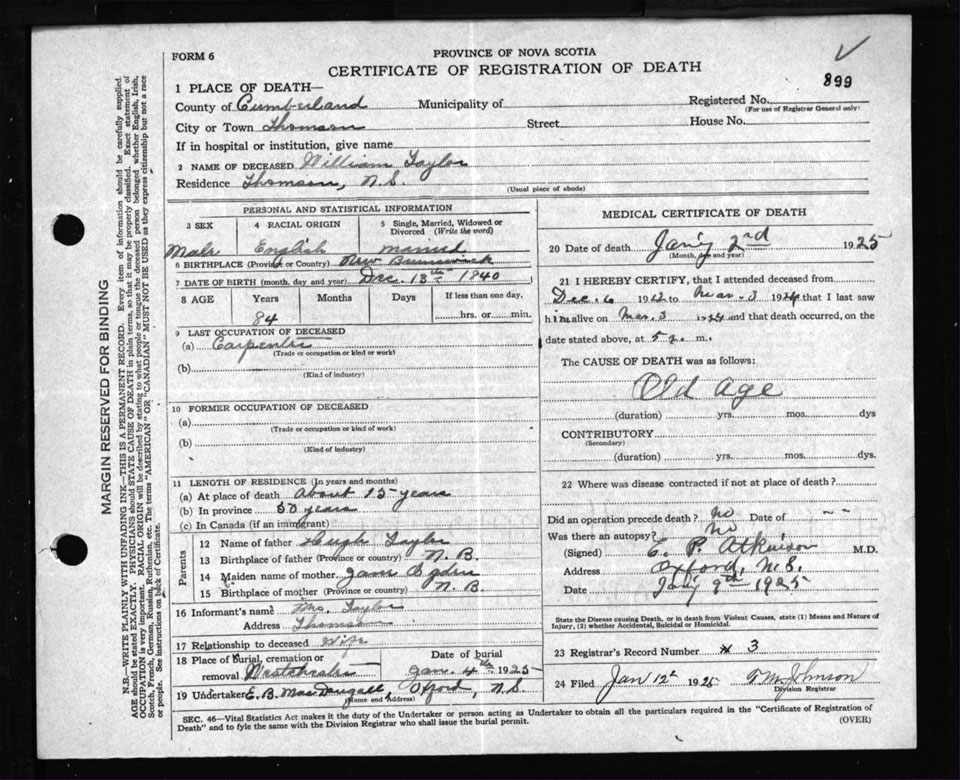 FORM 6
PROVINCE OF NOVA SCOTIA
CERTIFICATE OF REGISTRATION OF DEATH
899
1 PLACE OF DEATH—
County of Cumberland Municipality of Registered No.
(For use of Registrar General only)
City or Town Thomson Street House No.
If in hospital or institution, give name
2 NAME OF DECEASED William Taylor
Residence Thomson, N.S.
(Usual place of abode)
PERSONAL AND STATISTICAL INFORMATION
3 SEX 4 RACIAL ORIGIN 5 Single, Married, Widowed or Divorced (Write the word)
Male English married
6 BIRTHPLACE (Province or Country) New Brunswick
7 DATE OF BIRTH (month, day and year) Dec. 13th 1840
8 AGE Years Months Days If less than one day,
84 hrs. or min.
9 LAST OCCUPATION OF DECEASED
(a) Carpenter
(Trade or occupation or kind or work)
(b)
(Kind of industry)
10 FORMER OCCUPATION OF DECEASED
(a)
(Trade or occupation or kind of work)
(b)
(Kind of industry)
11 LENGTH OF RESIDENCE (In years and months)
(a) At place of death About 15 years
(b) In province 50 years
(c) In Canada (if an immigrant)
Parents
12 Name of father Hugh Taylor
13 Birthplace of father (Province or country) N.B.
14 Maiden name of mother Jane Ogden
15 Birthplace of mother (Province or country) N.B.
16 Informant's name Mrs. Taylor
Address Thomson
17 Relationship to deceased Wife
18 Place of burial, cremation or removal Date of burial
Jan. 4th 1925
19 Undertaker E. B. MacDougall, Oxford, N.S.
(Name and Address)
MEDICAL CERTIFICATE OF DEATH
20 Date of death Jan'y 2nd 1925
(Month, day and year)
21 I HEREBY CERTIFY, that I attended deceased from
Dec. 6 1922 to Mar. 3 1924 that I last saw
him alive on Mar. 3 1924 and that death occurred, on
date stated above, at 5 m.
The CAUSE OF DEATH was as follows:
Old Age
(duration) yrs. mos. dys
CONTRIBUTORY
(Secondary)
(duration) yrs. mos. dys.
22 Where was disease contracted if not at place of death?
Did an operation precede death? no Date of --
Was there an autopsy? no
(Signed) E. P. Atkinson M.D.
Address Oxford, N.S.
Date Jan'y 9th 1925
State the Disease causing Death, or in death from Violent Causes, state (1) Means and Nature of
Injury, (2) whether Accidental, Suicidal or Homicidal.
23 Registrar's Record Number 3
24 Filed Jan 12th 1925 Johnson
Division Registrar
SEC. 46—Vital Statistics Act makes it the duty of the Undertaker or person acting as Undertaker to obtain all the particulars required in the "Certificate of Registration of
Death" and to fyle the same with the Division Registrar who shall issue the burial permit.
(OVER)
MARGIN RESERVED FOR BINDING
N.B.—WRITE PLAINLY WITH UNFADING INK—THIS IS A PERMANENT RECORD. Every item of information should be carefully supplied.
AGE should be stated EXACTLY. PHYSICIANS should STATE CAUSE OF DEATH in plain terms, so that it may be properly classified. Exact statement of
OCCUPATION is very important. RACIAL ORIGIN will be described by stating to what people or tongue the deceased person belonged whether English, Irish,
Scotch, French, German, Russian, Ruthenian, etc. The terms "AMERICAN" OR "CANADIAN" MUST NOT BE USED as they express citizenship but not a race
or people. See instructions on back of Certificate.